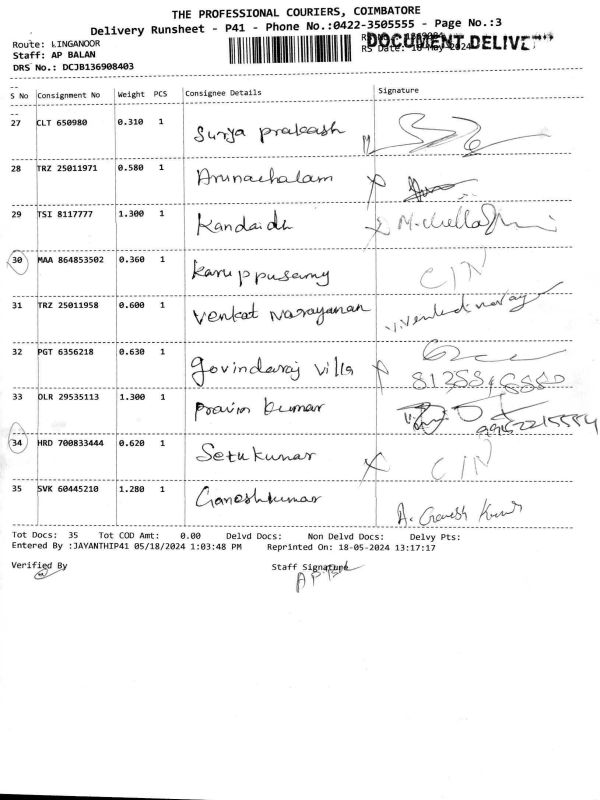 THE PROFESSIONAL COURIERS, COIMBATORE
Delivery Runsheet - P41 - Phone No.:0422-3505555 - Page No.:3
Route: LINGANOOR
Staff: AP BALAN
DRS No.: DCJB136908403
RS Date: 18 May 2024
DOCUMENT DELIVE
S No Consignment No Weight PCS Consignee Details Signature
27 CLT 650980 0.310 1 Surya prakash
28 TRZ 25011971 0.580 1 Arunachalam
29 TSI 8117777 1.300 1
30 MAA 864853502 0.360 1 Karuppusamy C/N
31 TRZ 25011958 0.600 1 Venkat Narayanan
32 PGT 6356218 0.630 1 Govindaraj villa
33 OLR 29535113 1.300 1 Pravin kumar
34 HRD 700833444 0.620 1 Setukumar C/N
35 SVK 60445210 1.280 1 Ganeshkumar A. Ganesh Kumar
Tot Docs: 35 Tot COD Amt: 0.00 Delvd Docs: Non Delvd Docs: Delvy Pts:
Entered By :JAYANTHIP41 05/18/2024 1:03:48 PM Reprinted On: 18-05-2024 13:17:17
Verified By Staff Signature